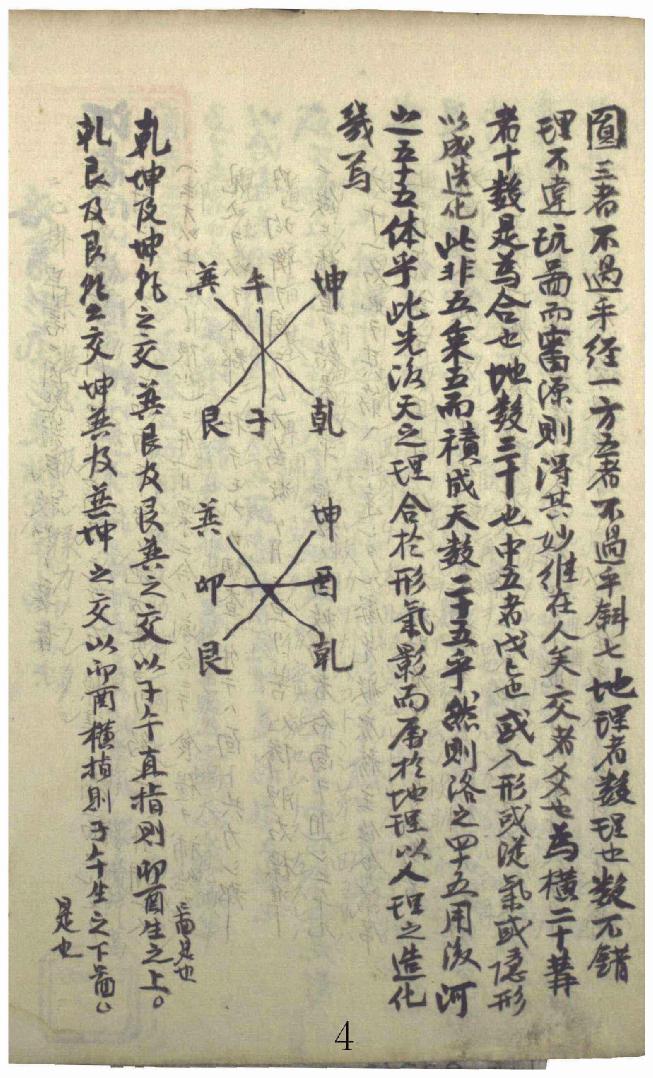 圓三者不過乎經一方五者不過乎斜七地理者數理也數不錯
理不違玩啚而審源則得其妙維在人矣交者爻也為橫二十幷
者十數是為合也地數三十也中五者戊己也或入形或從氣或隱形
以成造化此非五乘五而積成天數二十五乎然則洛之四十五用後河
之五十五体乎此先後天之理合於形氣影而屬於地理以人理之造化
我為
巽 午 坤
艮 子 乾
巽 坤
卯 酉
艮 乾
乾坤及坤乾之交巽艮及艮巽之交以子午直指則卯酉生之上。
啚是也
乾艮及艮乾之交坤巽及巽坤之交以卯酉橫指則子午生之下啚。
是也
4